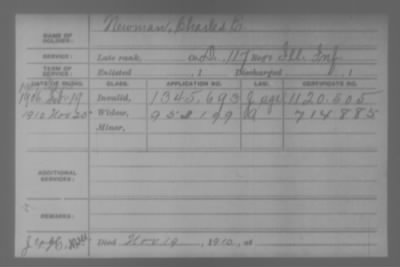 NAME OF SOLDIER: Newman, Charles E.
SERVICE: Late rank, Co. D. 117 Reg't Ill. Inf.
TERM OF SERVICE: Enlisted , 1 Discharged , 1
DATE OF FILING. CLASS. APPLICATION NO. LAW. CERTIFICATE NO.
Invalid, 1345.693 age 1120.505
1910 Nov 25 Widow, 714.885
Minor,
ADDITIONAL SERVICES:
REMARKS:
Died Nov 19, 1910, at